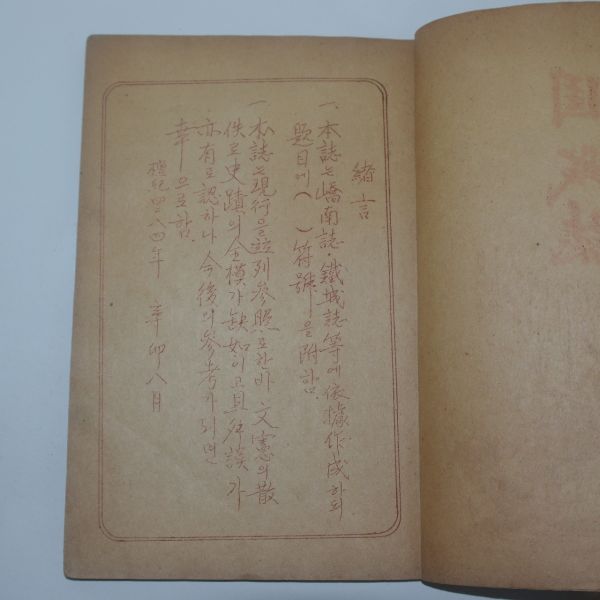 緖言
一、本誌는 嶠南誌·鐵城誌等에 依據作成하되
題目에 ( ) 符號을 附함.
一、本誌는 現行을 並列參照로한바 文憲의 散
佚로 史蹟의 全模가 缺如이고 且 誤가
亦有로 認하나 今後의 參考가 되면
幸으로 함.
檀紀四二八四年 辛卯八月